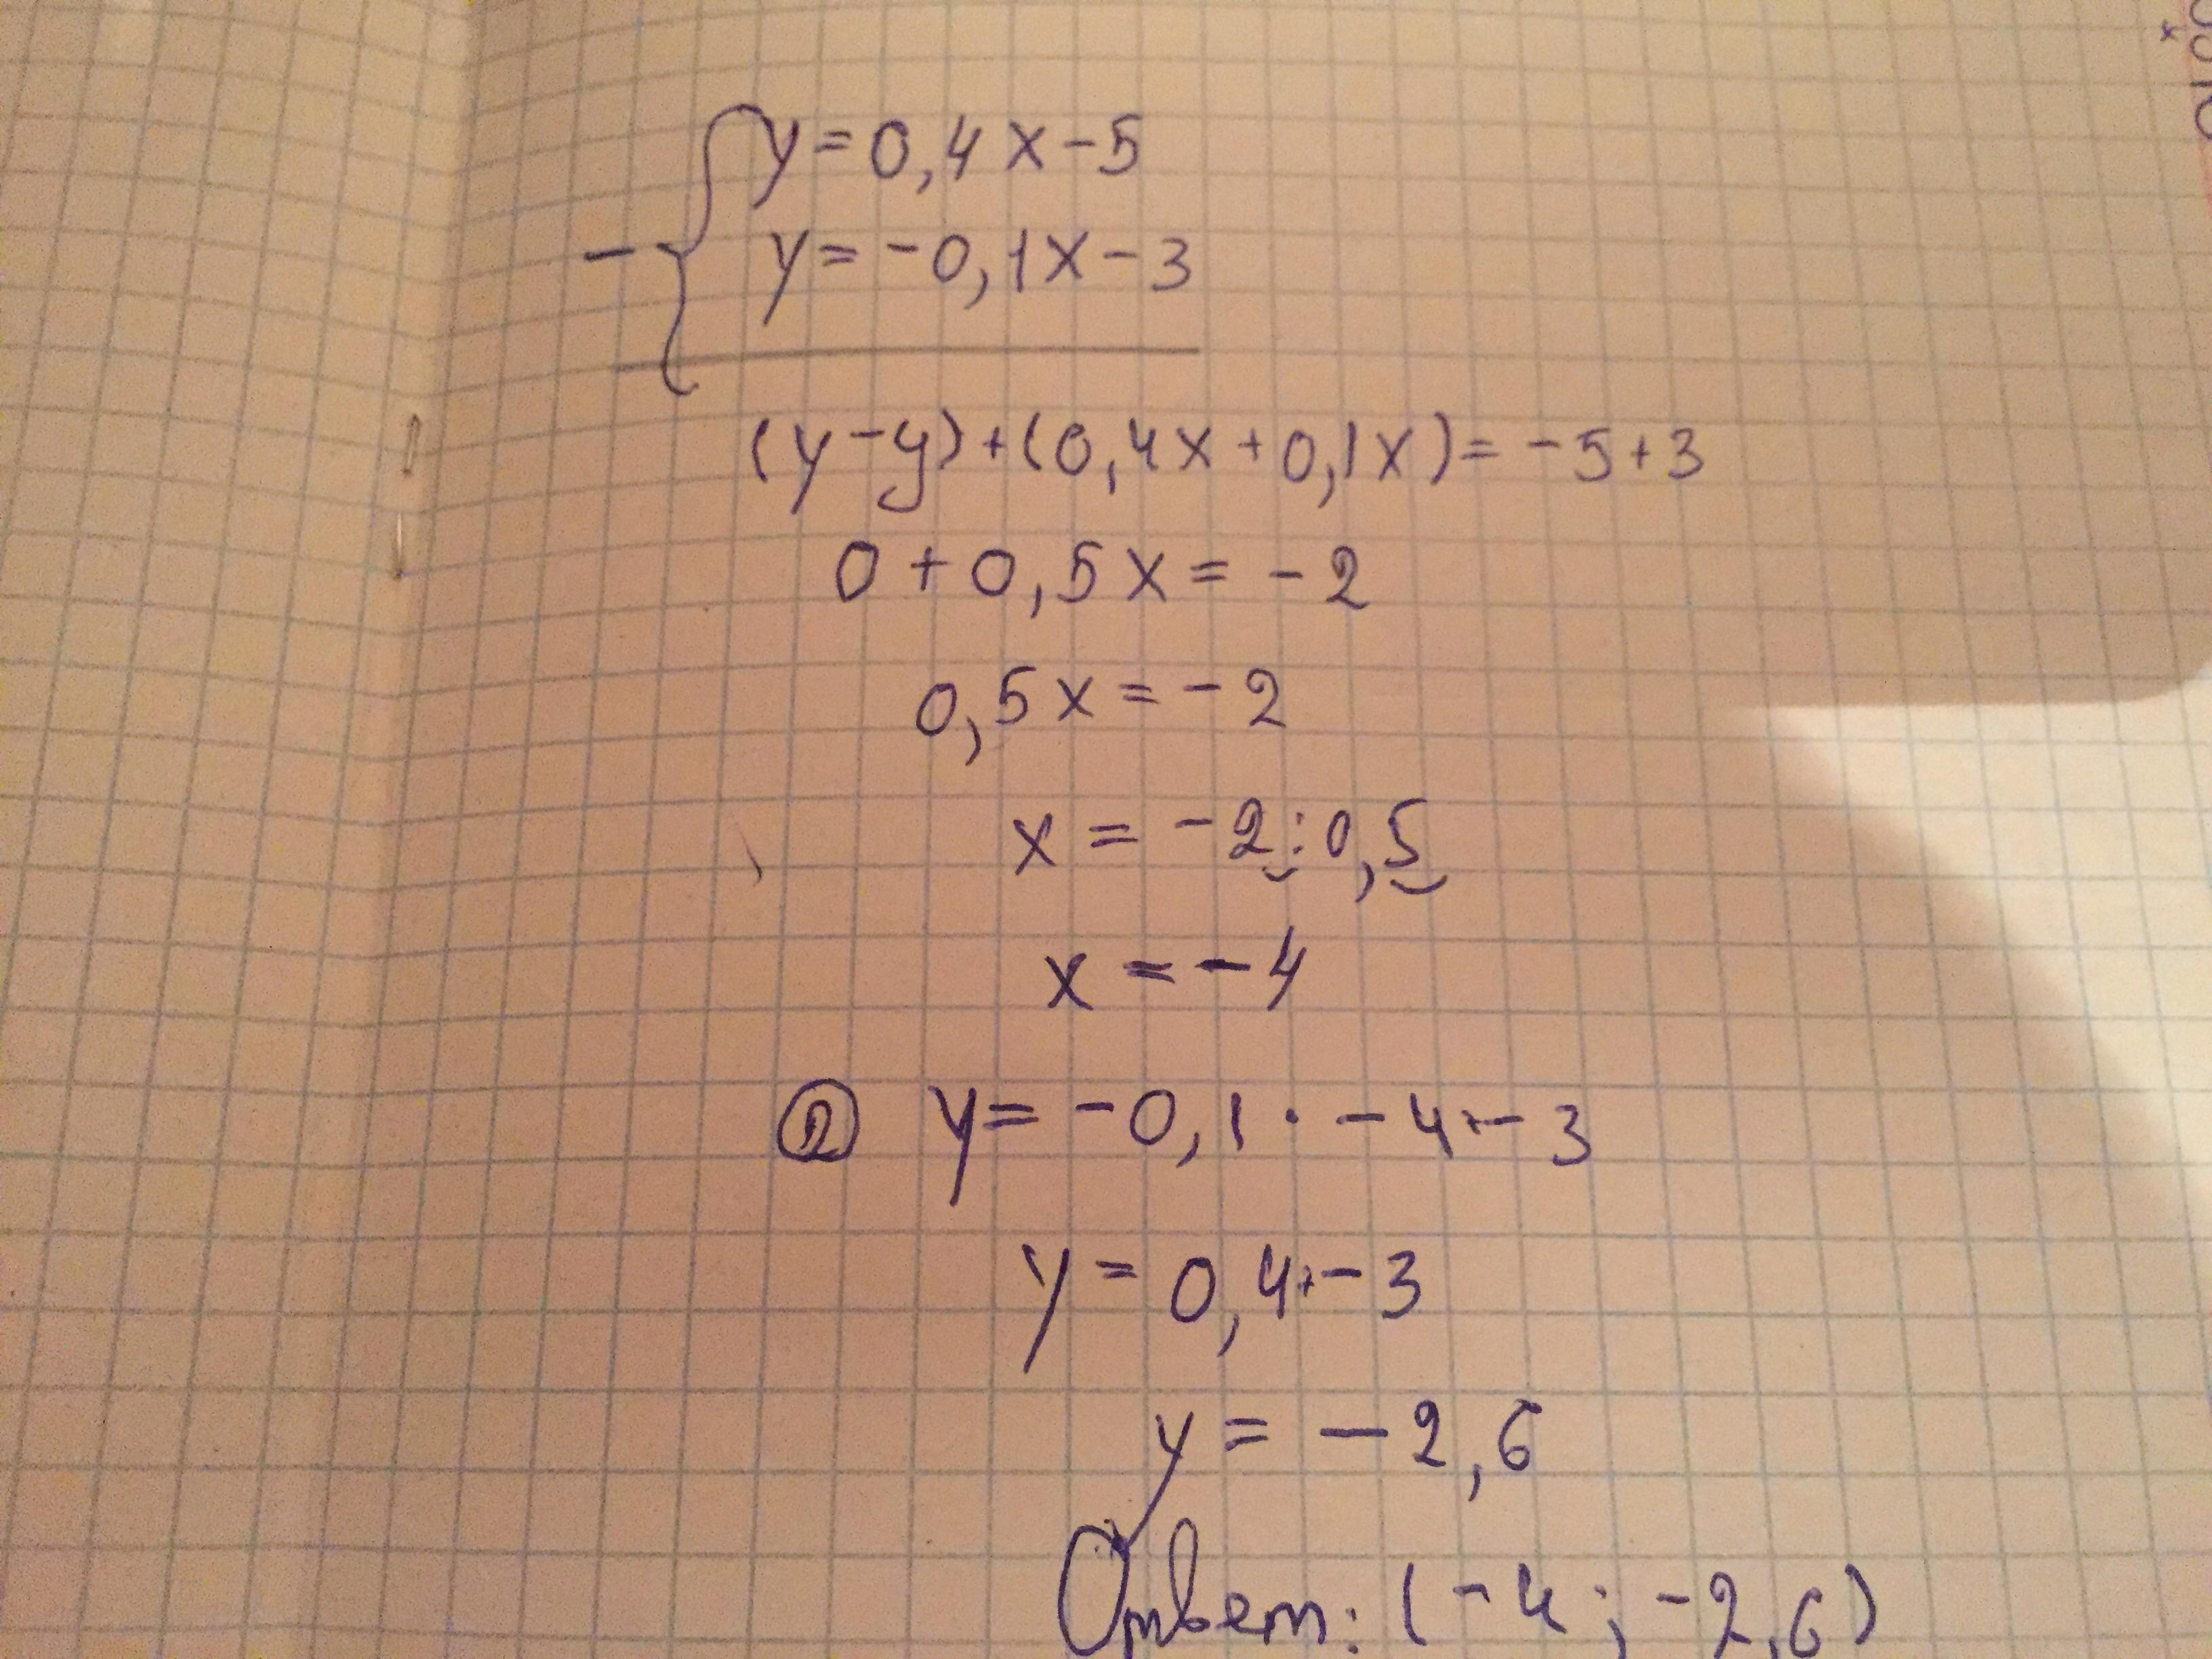 y = 0,4x - 5
- { y = -0,1x - 3
(y - y) + (0,4x + 0,1x) = -5 + 3
0 + 0,5x = -2
0,5x = -2
x = -2 : 0,5
x = -4
② y = -0,1 · -4 + -3
y = 0,4 + -3
y = -2,6
Ответ: (-4 ; -2,6)